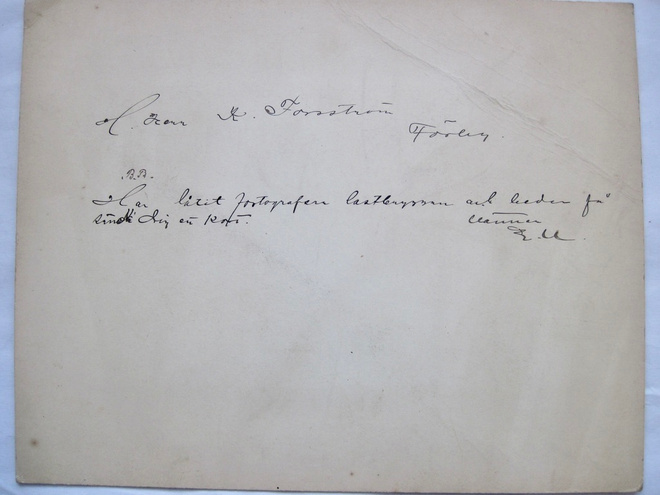 H. Herr K. Forsström
Förby.
B.B.
Har låtit fortografera lastbryggan och beder få
sända dig en kort. Vänner